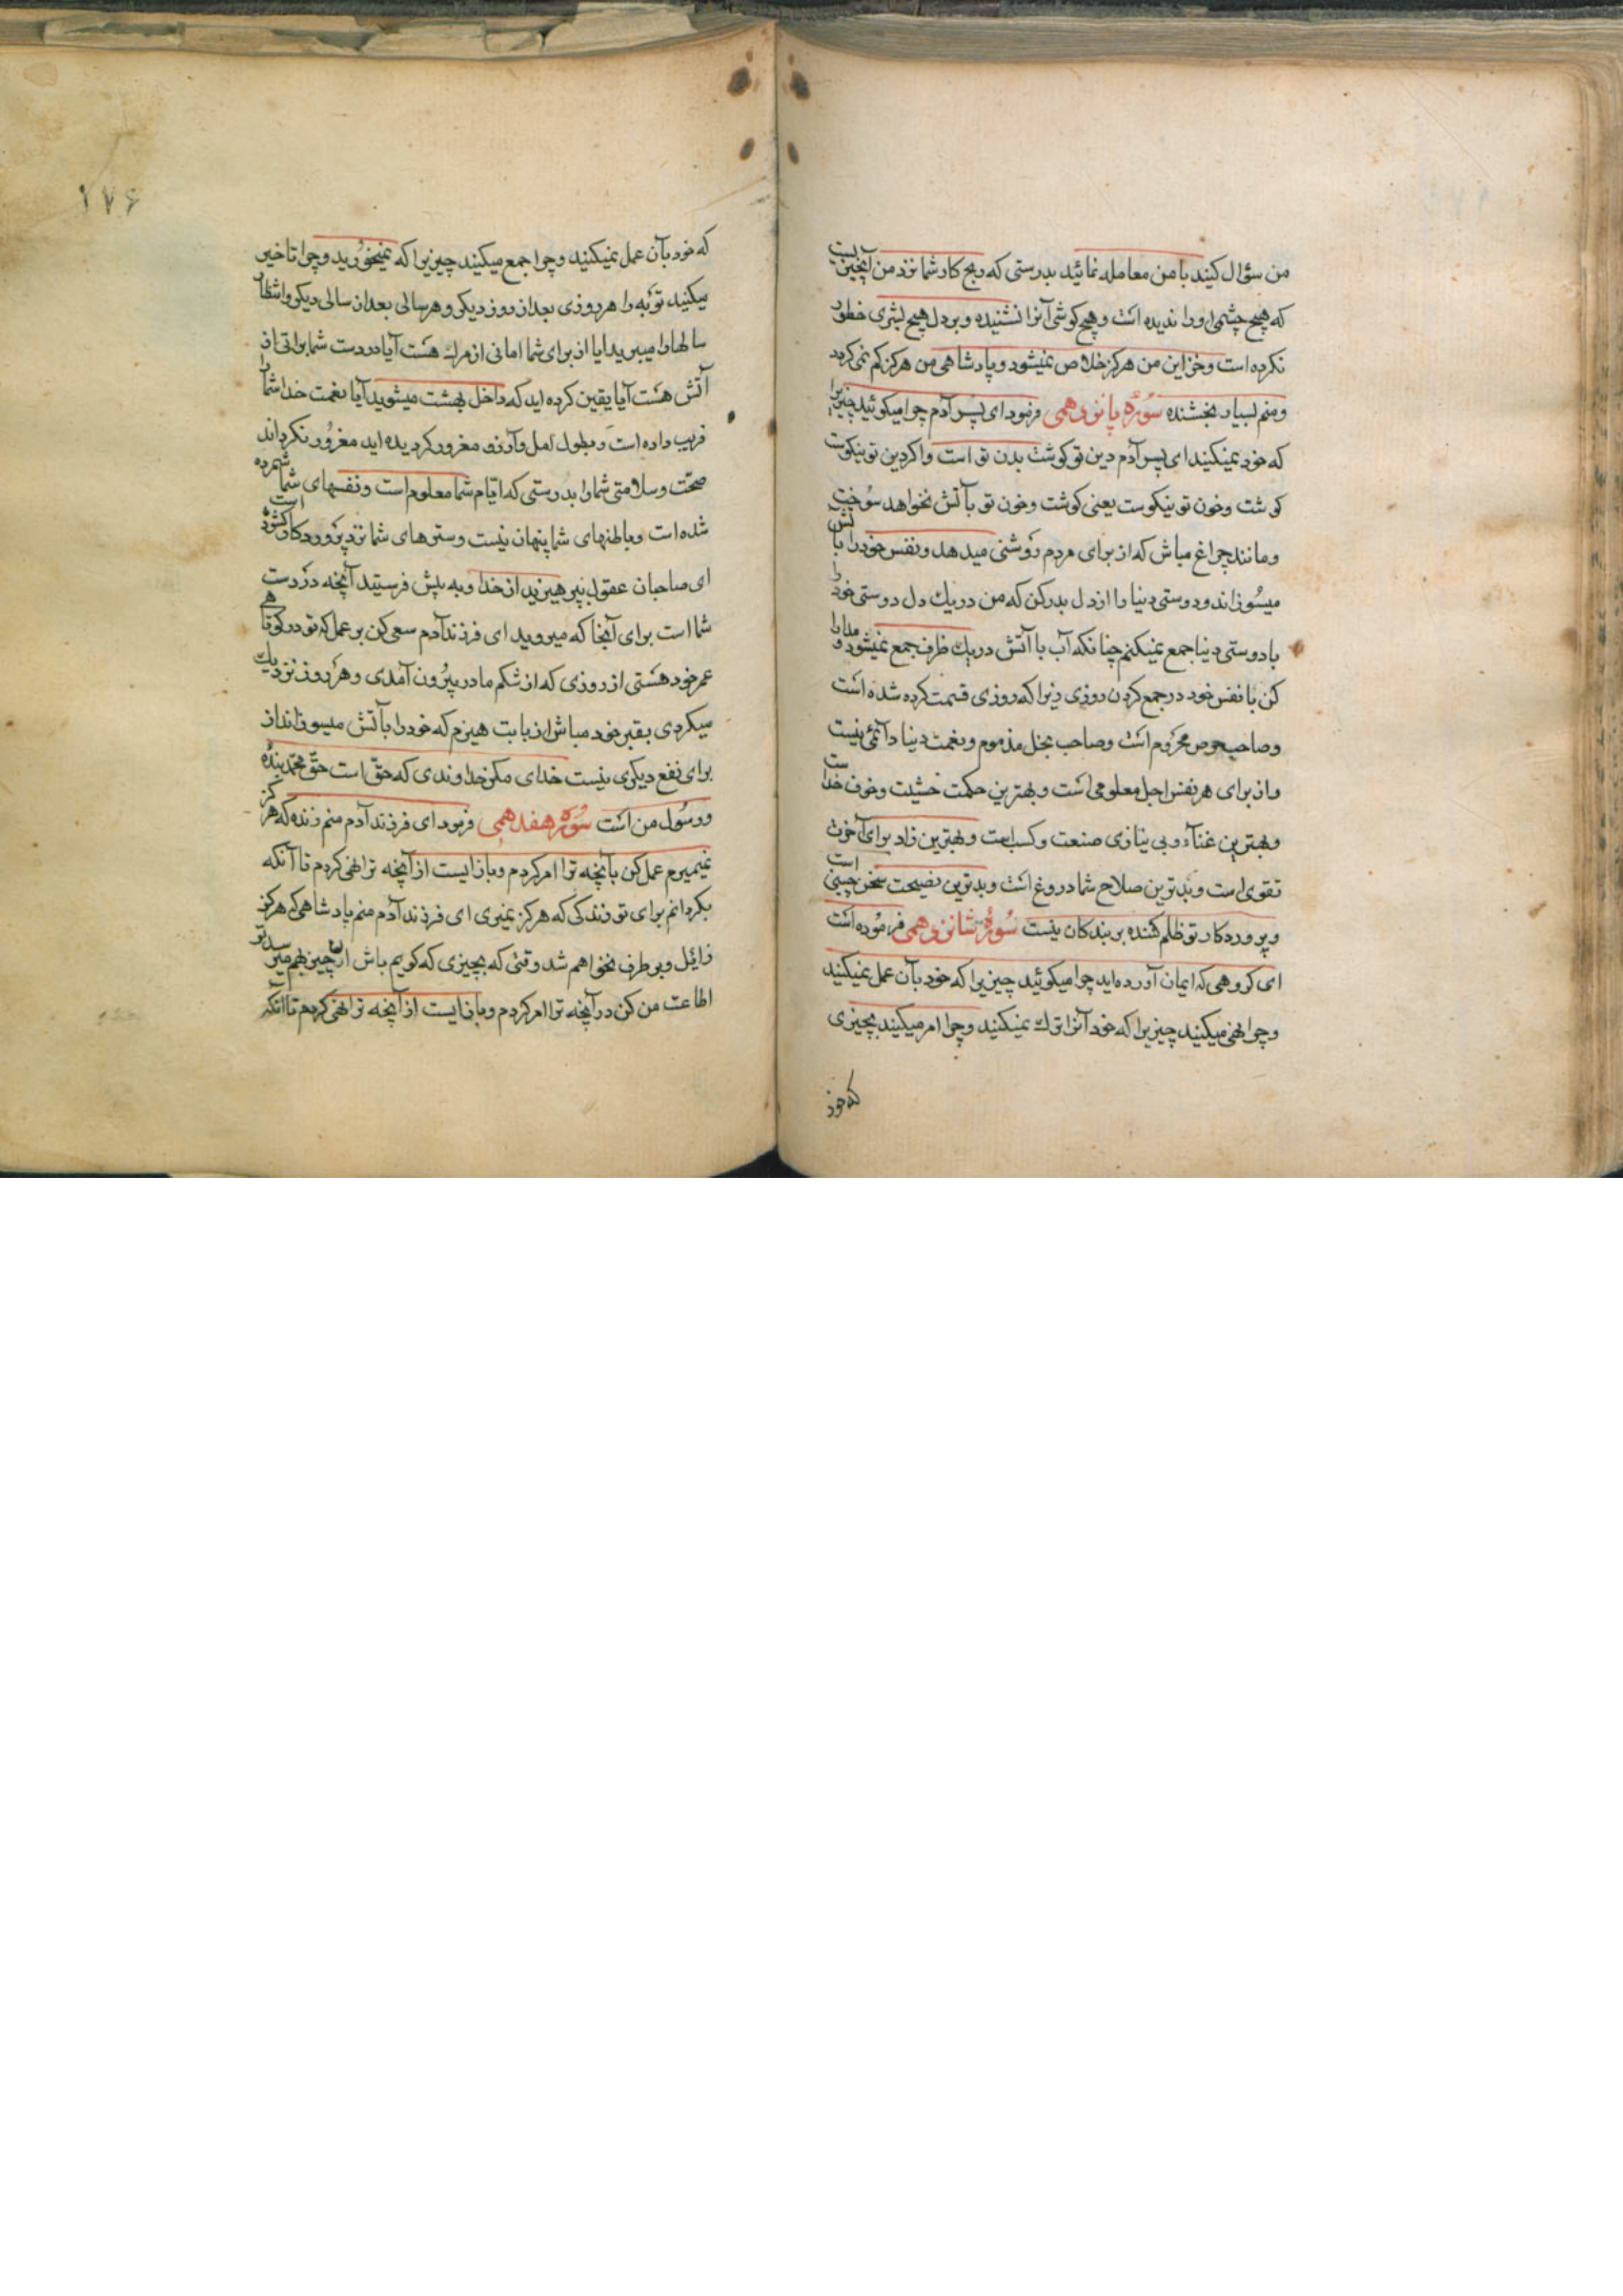 من سؤال کنید با من معامله نمائید بدرستی که ربح کار شما نزد من آنچیزیست
که هیچ چشمی او را ندیده است و هیچ کوشی آنرا نشنیده و بر دل هیچ بشری خطور
نکرده است و خزاین من هرکز خلاص نمیشود و پادشاهی من هرکز کم نمیکردد
و منم بسیار بخشنده سوره پانزدهمی فرمود ای پسر آدم چرا میکوئید چیزیرا
که خود نمیکنید ای پسر آدم دین تو کوشت بدن تو است و اکر دین تو نیکوست
کوشت و خون تو نیکوست یعنی کوشت و خون تو بآتش نخواهد سوخت
و مانند چراغ مباش که از برای مردم روشنی میدهد و نفس خود را بآتش
میسوزاند و دوستی دنیا را از دل بدر کن که من در یک دل دوستی خود را
با دوستی دنیا جمع نمیکنم چنانکه آب با آتش در یک ظرف جمع نمیشود و مدارا
کن با نفس خود در جمع کردن روزی زیرا که روزی قسمت کرده شده است
و صاحب حرص محروم است و صاحب بخل مذموم و نعمت دنیا دائمی نیست
و از برای هر نفس اجل معلومی است و بهترین حکمت خشیت و خوف خداست
و بهترین غناء و بی نیازی صنعت و کسب است و بهترین زاد برای آخرت
تقوی است و بدترین صلاح شما دروغ است و بدترین نصیحت سخن چینی است
و پروردکار تو ظلم کننده بر بندکان نیست سوره شانزدهمی فرموده است
ای کروهی که ایمان آورده اید چرا میکوئید چیزیرا که خود بآن عمل نمیکنید
و چرا نهی میکنید چیزیرا که خود آنرا ترک نمیکنید و چرا امر میکنید بچیزی
که خود
۱۷۶
که خود بآن عمل نمیکنید و چرا جمع میکنید چیزیرا که نمیخورید و چرا تاخیر
میکنید توبه را هر روزی بعد از روز دیکر و هر سالی بعد از سالی دیکر و انتظار
سالها را میبرید ایا از برای شما امانی از مرک هست آیا در دست شما براتی از
آتش هست آیا یقین کرده اید که داخل بهشت میشوید آیا نعمت خدا شما را
فریب داده است و بطول امل و آرزو مغرور کردیده اید مغرور نکرداند
صحت و سلامتی شما را بدرستی که ایام شما معلوم است و نفسهای شما شمرده
شده است و باطنهای شما پنهان نیست و سترهای شما نزد پروردکار کشوده است
ای صاحبان عقول بپرهیزید از خدا و به پیش فرستید آنچه در دست
شما است برای آنجا که میروید ای فرزند آدم سعی کن بر عمل که تو در کوتاهی
عمر خود هستی از روزی که از شکم مادر بیرون آمدی و هر روز نزدیک
میکردی بقبر خود مباش از بابت هیزم که خود را بآتش میسوزاند از
برای نفع دیکری نیست خدای مکر خداوندی که حق است حق محمد بنده
و رسول من است سوره هفدهمی فرمود ای فرزند آدم منم زنده که هرکز
نمیمیرم عمل کن بآنچه ترا امر کردم و باز ایست از آنچه ترا نهی کردم تا آنکه
بکردانم برای تو زندکی که هرکز نمیری ای فرزند آدم منم پادشاهی که هرکز
زائل و برطرف نخواهم شد وقتی که بچیزی که کویم باش آن چیز بهم میرسد تو
اطاعت من کن در آنچه ترا امر کردم و باز ایست از آنچه ترا نهی کردم تا آنکه